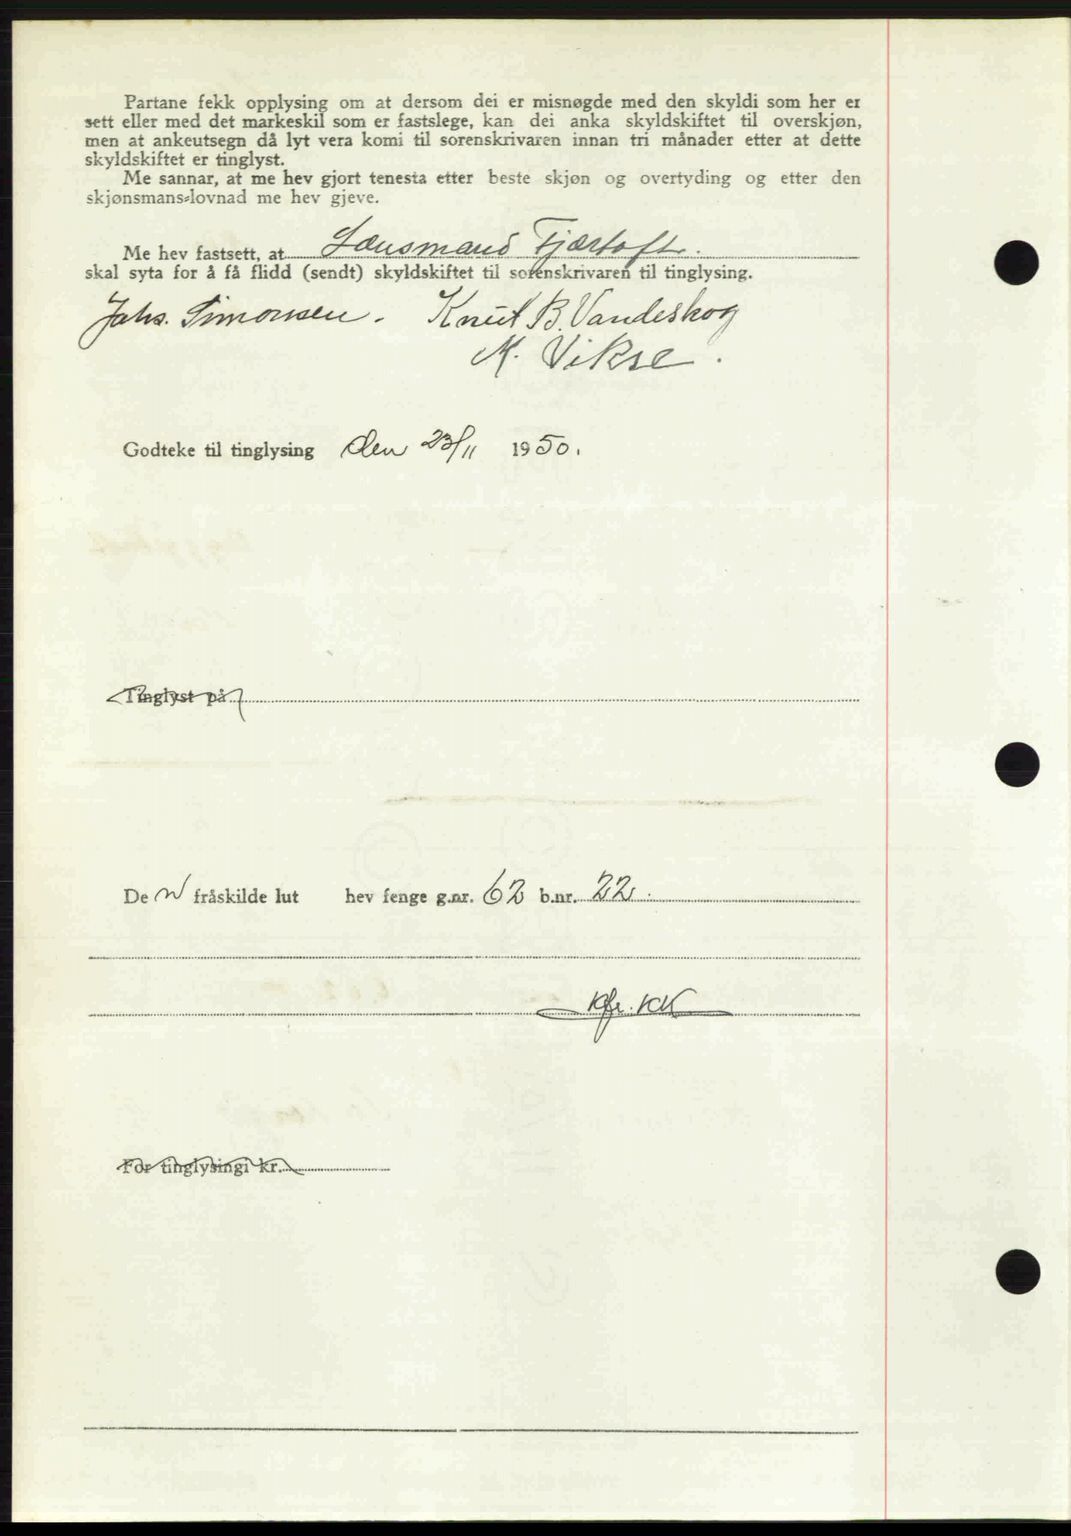 Partane fekk opplysing om at dersom dei er misnøgde med den skyldi som her er
sett eller med det markeskil som er fastslege, kan dei anka skyldskiftet til overskjøn,
men at ankeutsegn då lyt vera komi til sorenskrivaren innan tri månader etter at dette
skyldskiftet er tinglyst.
Me sannar, at me hev gjort tenesta etter beste skjøn og overtyding og etter den
skjønsmans-lovnad me hev gjeve.
Me hev fastsett, at Lænsmand Fjærtoft.
skal syta for å få flidd (sendt) skyldskiftet til sorenskrivaren til tinglysing.
Johs. Simonsen. Knut B. Vandeskog
M. Vikse.
Godteke til tinglysing den 23/11 1950.
Tinglyst på
De n fråskilde lut hev fenge g.nr. 62 b.nr. 22.
Kfr. KK
For tinglysingi kr.